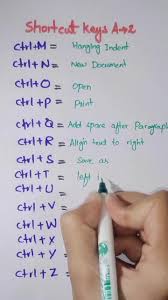 Shortcut Keys A→Z
Ctrl+M = Hanging Indent
Ctrl+N = New Document
Ctrl+O = Open
Ctrl+P = Print
Ctrl+Q = Add space after Paragraph
Ctrl+R = Align text to right
Ctrl+S = Save as
Ctrl+T = left
Ctrl+U =
Ctrl+V =
Ctrl+W
Ctrl+X
Ctrl+Y =
Ctrl+Z =